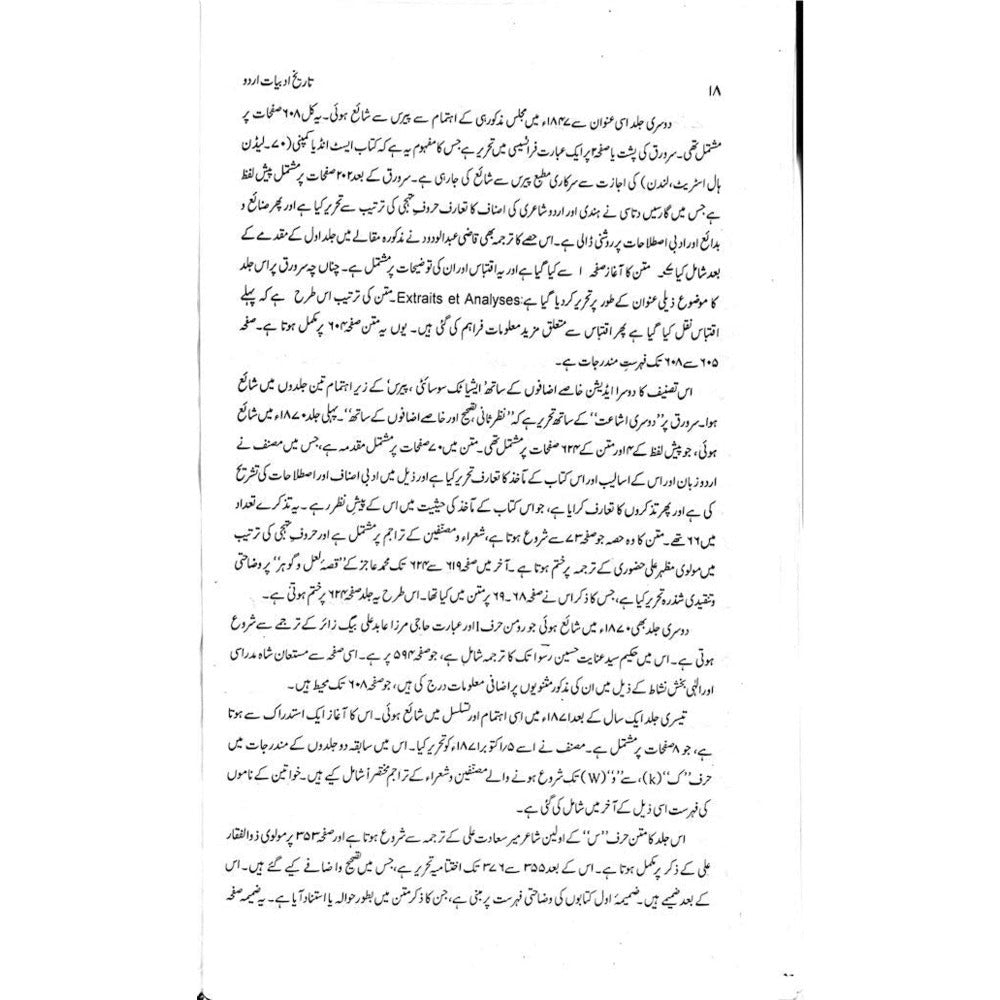 ۱۸
تاریخ ادبیات اردو
دوسری جلد اسی عنوان سے ۱۸۴۷ء میں مجلس مذکور ہی کے اہتمام سے پیرس سے شائع ہوئی۔ یہ کل ۶۰۸ صفحات پر
مشتمل تھی۔ سرورق کی پشت یا صفحہ ۲ پر ایک عبارت فرانسیسی میں تحریر ہے جس کا مفہوم یہ ہے کہ کتاب ایسٹ انڈیا کمپنی (۷۰۔ لیڈن
ہال اسٹریٹ، لندن) کی اجازت سے سرکاری مطبع پیرس سے شائع کی جا رہی ہے۔ سرورق کے بعد ۲۰۲ صفحات پر مشتمل پیش لفظ
ہے جس میں گارسیں دتاسی نے ہندی اور اردو شاعری کی اصناف کا تعارف حروفِ تہجی کی ترتیب سے تحریر کیا ہے اور پھر صنائع و
بدائع اور ادبی اصطلاحات پر روشنی ڈالی ہے۔ اس حصے کا ترجمہ بھی قاضی عبدالودود نے مذکورہ مقالے میں جلد اول کے مقدمے کے
بعد شامل کیا متن کا آغاز صفحہ ۱ سے کیا گیا ہے اور یہ اقتباس اور ان کی توضیحات پر مشتمل ہے۔ چناں چہ سرورق پر اس جلد
کا موضوع ذیلی عنوان کے طور پر تحریر کر دیا گیا ہے: Extraits et Analyses۔ متن کی ترتیب اس طرح ہے کہ پہلے
اقتباس نقل کیا گیا ہے پھر اقتباس سے متعلق مزید معلومات فراہم کی گئی ہیں۔ یوں یہ متن صفحہ ۶۰۴ پر مکمل ہوتا ہے۔ صفحہ
۶۰۵ سے ۶۰۸ تک فہرستِ مندرجات ہے۔
اس تصنیف کا دوسرا ایڈیشن خاصے اضافوں کے ساتھ 'ایشیاٹک سوسائٹی، پیرس' کے زیر اہتمام تین جلدوں میں شائع
ہوا۔ سرورق پر ''دوسری اشاعت'' کے ساتھ تحریر ہے کہ ''نظر ثانی، تصحیح اور خاصے اضافوں کے ساتھ''۔ پہلی جلد ۱۸۷۰ء میں شائع
ہوئی، جو پیش لفظ کے ۴ اور متن کے ۶۲۴ صفحات پر مشتمل تھی۔ متن میں ۷۰ صفحات پر مشتمل مقدمہ ہے، جس میں مصنف نے
اردو زبان اور اس کے اسالیب اور اس کتاب کے مآخذ کا تعارف تحریر کیا ہے اور ذیل میں ادبی اصناف اور اصطلاحات کی تشریح
کی ہے اور پھر تذکروں کا تعارف کرایا ہے، جو اس کتاب کے مآخذ کی حیثیت میں اس کے پیش نظر رہے۔ یہ تذکرے تعداد
میں ۶۶ تھے۔ متن کا وہ حصہ جو صفحہ ۷۳ سے شروع ہوتا ہے، شعراء و مصنفین کے تراجم پر مشتمل ہے اور حروفِ تہجی کی ترتیب
میں مولوی مظہر علی حضوری کے ترجمہ پر ختم ہوتا ہے۔ آخر میں صفحہ ۶۱۹ سے ۶۲۴ تک محمد عاجز کے ''قصۂ لعل و گوہر'' پر وضاحتی
و تنقیدی شذرہ تحریر کیا ہے، جس کا ذکر اس نے صفحہ ۶۸۔ ۶۹ پر متن میں کیا تھا۔ اس طرح یہ جلد صفحہ ۶۲۴ پر ختم ہوتی ہے۔
دوسری جلد بھی ۱۸۷۰ء میں شائع ہوئی جو رومن حرف I اور عبارت حاجی مرزا عابد علی بیگ زائر کے ترجمے سے شروع
ہوتی ہے۔ اس میں حکیم سید عنایت حسین رسوا تک کا ترجمہ شامل ہے، جو صفحہ ۵۹۴ پر ہے۔ اسی صفحہ سے مستعان شاہ مدراسی
اور الٰہی بخش نشاط کے ذیل میں ان کی مذکور مثنویوں پر اضافی معلومات درج کی ہیں، جو صفحہ ۶۰۸ تک محیط ہیں۔
تیسری جلد ایک سال کے بعد ۱۸۷۱ء میں اسی اہتمام اور تسلسل میں شائع ہوئی۔ اس کا آغاز ایک استدراک سے ہوتا
ہے، جو ۸ صفحات پر مشتمل ہے۔ مصنف نے اسے ۱۵/اکتوبر ۱۸۷۱ء کو تحریر کیا۔ اس میں سابقہ دو جلدوں کے مندرجات میں
حرف ''ک'' (k)، سے ''و'' (W) تک شروع ہونے والے مصنفین و شعراء کے تراجم مختصراً شامل کیے ہیں۔ خواتین کے ناموں
کی فہرست اسی ذیل کے آخر میں شامل کی گئی ہے۔
اس جلد کا متن حرف ''س'' کے اولین شاعر میر سعادت علی کے ترجمہ سے شروع ہوتا ہے اور صفحہ ۳۵۳ پر مولوی ذوالفقار
علی کے ذکر پر مکمل ہوتا ہے۔ اس کے بعد ۳۵۵ سے ۳۷۶ تک اختتامیہ تحریر ہے، جس میں تصحیح و اضافے کیے گئے ہیں۔ اس
کے بعد ضمیمے ہیں۔ ضمیمۂ اول کتابوں کی وضاحتی فہرست پر مبنی ہے، جن کا ذکر متن میں بطور حوالہ یا استناد آیا ہے۔ یہ ضمیمہ صفحہ